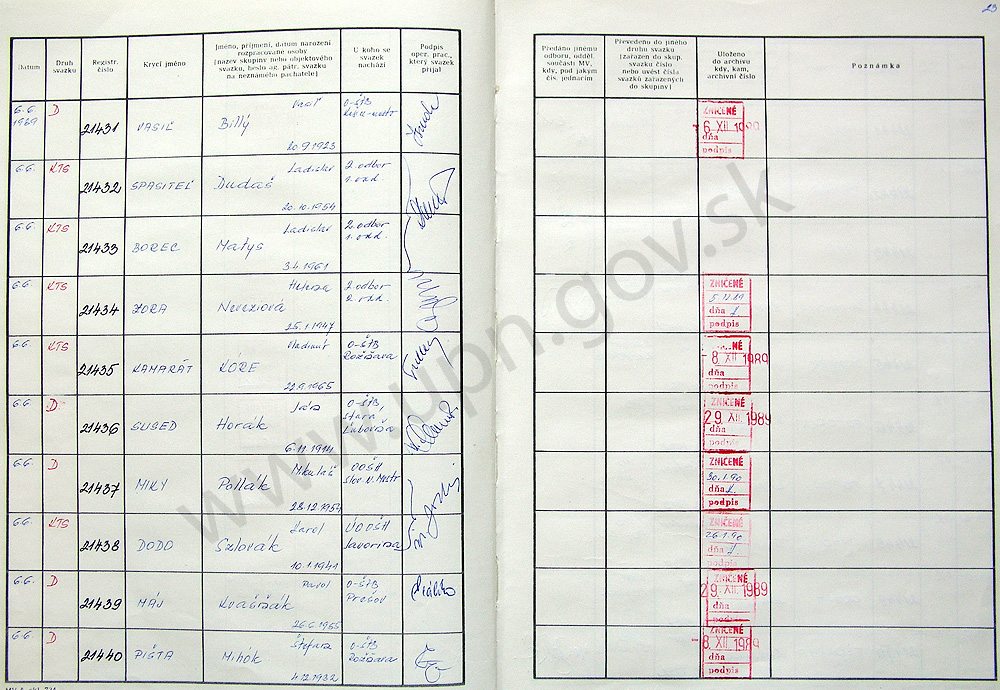 23
Datum
Druh svazku
Registr. číslo
Krycí jméno
Jméno, příjmení, datum narození rozpracované osoby (název skupiny nebo objektového svazku, heslo ag. pátr. svazku na neznámého pachatele)
U koho se svazek nachází
Podpis oper. prac., který svazek přijal
Předáno jinému odboru, odděl. součásti MV, kdy, pod jakým čís. jednacím
Převedeno do jiného druhu svazku (zařazen do skup. svazku číslo nebo uvést čísla svazků zařazených do skupiny)
Uloženo do archivu kdy, kam, archivní číslo
Poznámka
6.6. 1989 D 21431 VASIL Billý 20.9.1923 O-ŠTB
ZNIČENÉ 6 XII 1989 dňa podpis
6.6. KTS 21432 SPASITEĽ Ladislav Dudáš 20.10.1954 2. odbor
6.6. KTS 21433 BOREC Ladislav Matys 3.4.1961 2. odbor 1. odd.
6.6. KTS 21434 ZORA Helena 25.1.1947 2. odbor 2. odd.
ZNIČENÉ dňa podpis
6.6. KTS 21435 KAMARÁT Vladimír KÓRE 22.9.1965 O-ŠTB Rožňava
-8. XII 1989 dňa podpis
6.6. D 21436 SUSED Ján Horák 6.11.1914 O-ŠTB Stará Ľubovňa
ZNIČENÉ 29. XII 1989 dňa podpis
6.6. D 21437 MIKY Mikuláš Pollák 28.12.1954 Slov. N. Mesto
ZNIČENÉ 30.1.90 dňa podpis
6.6. KTS 21438 DODO Karol Szlovák 10.1.1941 Javorina
ZNIČENÉ 26.1.90 dňa podpis
6.6. D 21439 MÁV Pavol Kvašňák 26.6.1955 O-ŠTB Prešov
ZNIČENÉ 29. XII 1989 dňa podpis
6.6. D 21440 PIŠTA Štefan Mihók 4.12.1932 O-ŠTB Rožňava
ZNIČENÉ -8. XII 1989 dňa podpis
www.upn.gov.sk